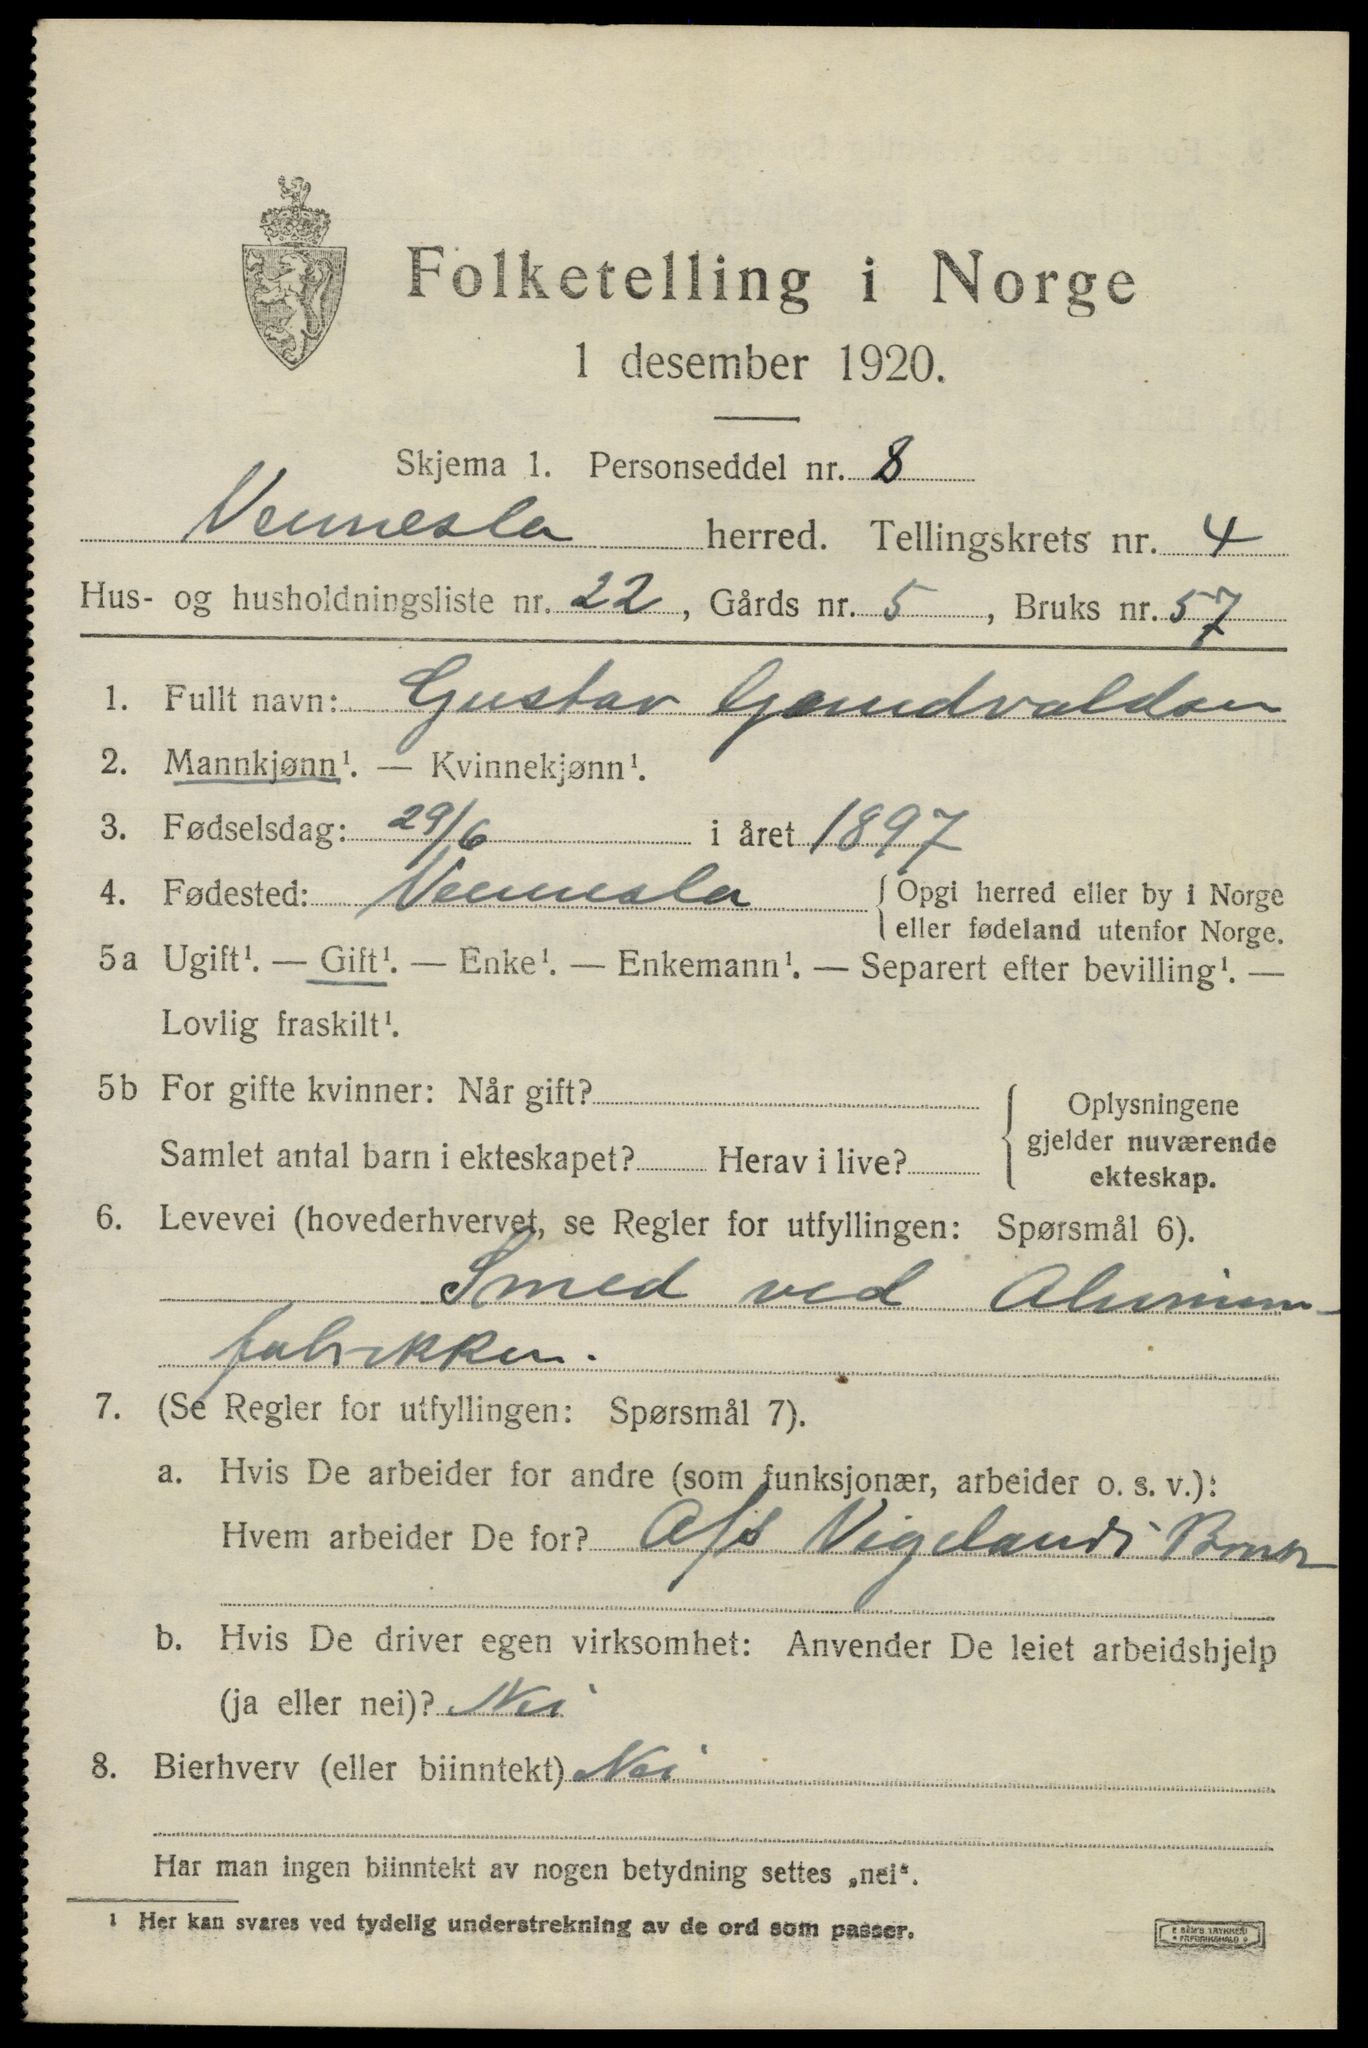 Folketelling i Norge
1 desember 1920.
Skjema 1. Personseddel nr. 8
Vennesla herred. Tellingskrets nr. 4
Hus- og husholdningsliste nr. 22, Gårds nr. 5, Bruks nr. 57
1. Fullt navn: Gustav
2. Mannkjønn¹. — Kvinnekjønn¹.
3. Fødselsdag: 29/6 i året 1897
4. Fødested: Vennesla {Opgi herred eller by i Norge
eller fødeland utenfor Norge.
5a Ugift¹. — Gift¹. — Enke¹. — Enkemann¹. — Separert efter bevilling¹. —
Lovlig fraskilt¹.
5b For gifte kvinner: Når gift? { Oplysningene
gjelder nuværende
Samlet antal barn i ekteskapet? Herav i live?
ekteskap.
6. Levevei (hovederhvervet, se Regler for utfyllingen: Spørsmål 6).
Smed ved Aluminium-
fabrikken.
7. (Se Regler for utfyllingen: Spørsmål 7).
a. Hvis De arbeider for andre (som funksjonær, arbeider o. s. v.):
Hvem arbeider De for? A/S Vigelands Bruk
b. Hvis De driver egen virksomhet: Anvender De leiet arbeidshjelp
(ja eller nei)? Nei
8. Bierhverv (eller biinntekt) Nei
Har man ingen biinntekt av nogen betydning settes „nei“.
¹ Her kan svares ved tydelig understrekning av de ord som passer.
SEM'S TRYKKERI
FREDRIKSHALD